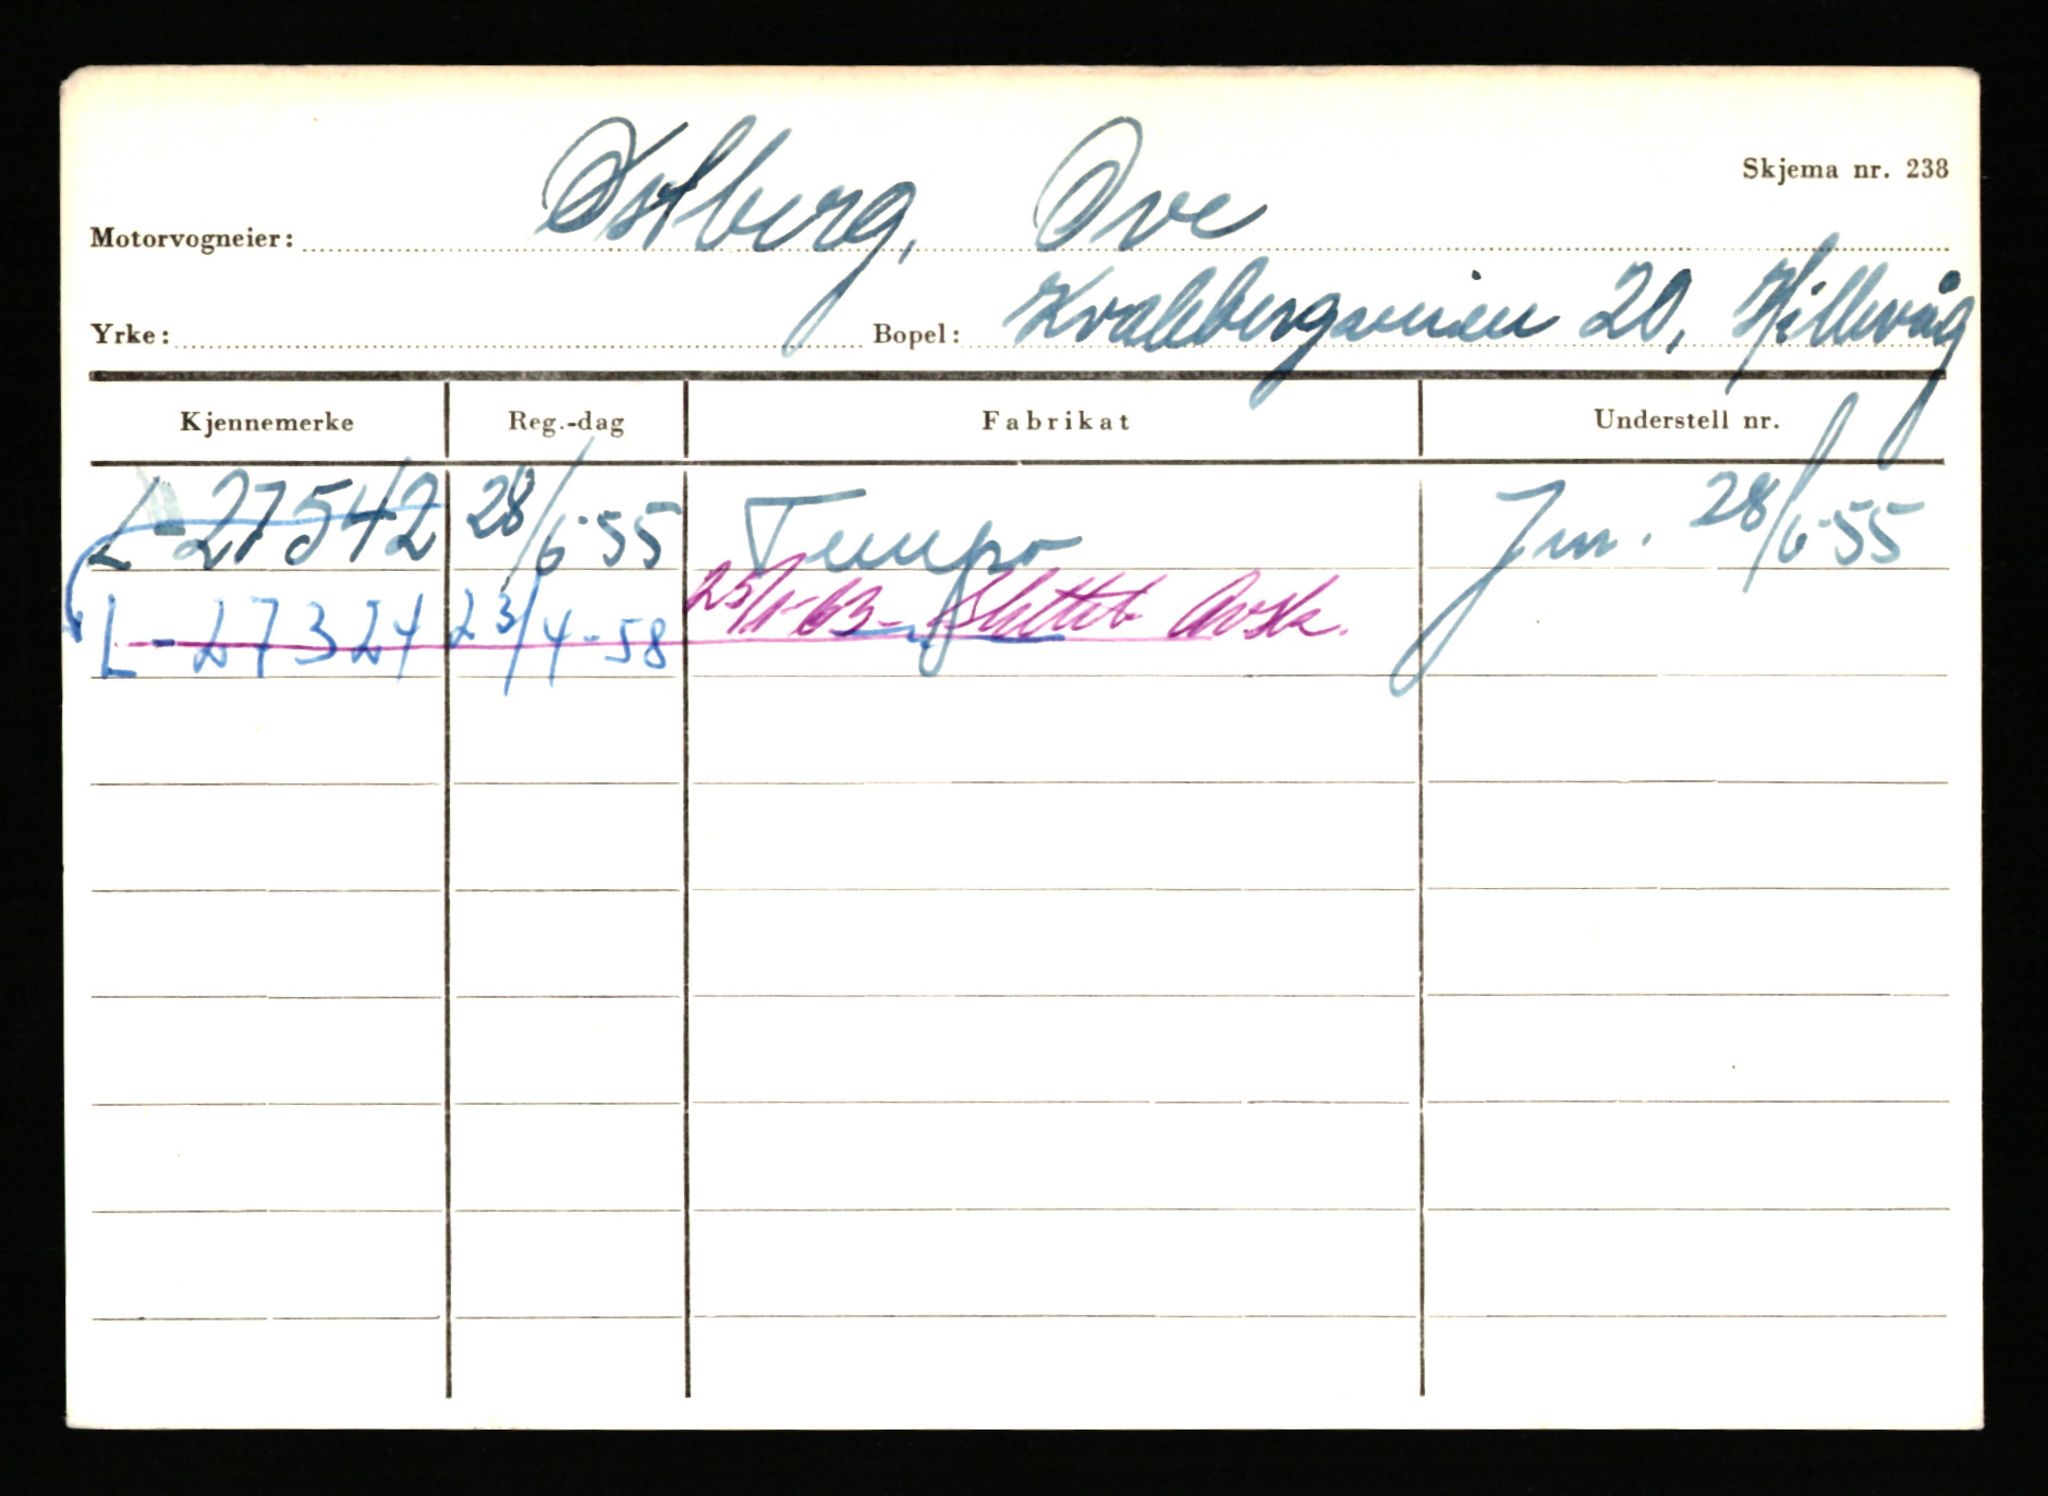 Skjema nr. 238
Motorvogneier: Østberg, Ove
Yrke: Bopel: 20, Hillevåg
Kjennemerke Reg.-dag Fabrikat Understell nr.
L-27542 28/6-55 Tempo Jnn. 28/6-55
L-27324 23/4-58 25/1-63- Slettet Avsk.